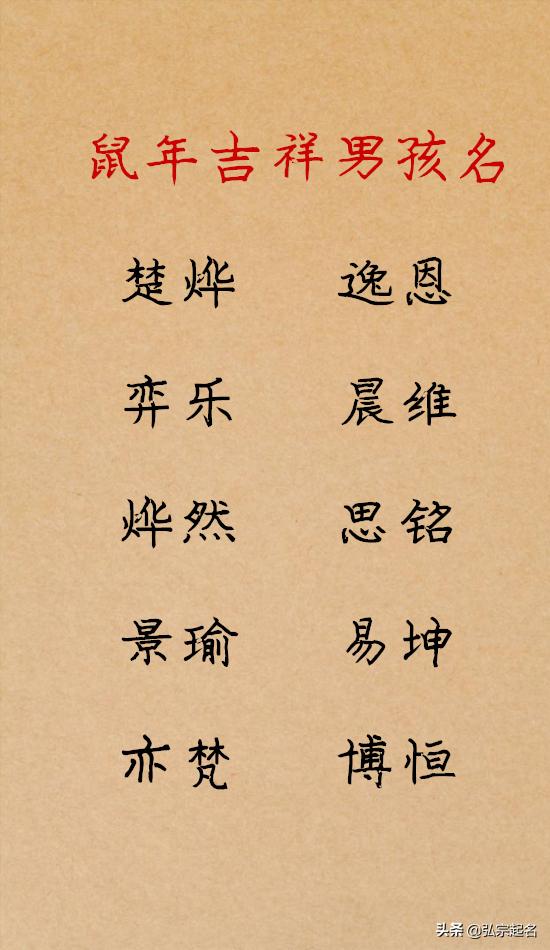 鼠年吉祥男孩名
楚烨 逸恩
弈乐 晨维
烨然 思铭
景瑜 易坤
亦梵 博恒
头条 @弘宗起名